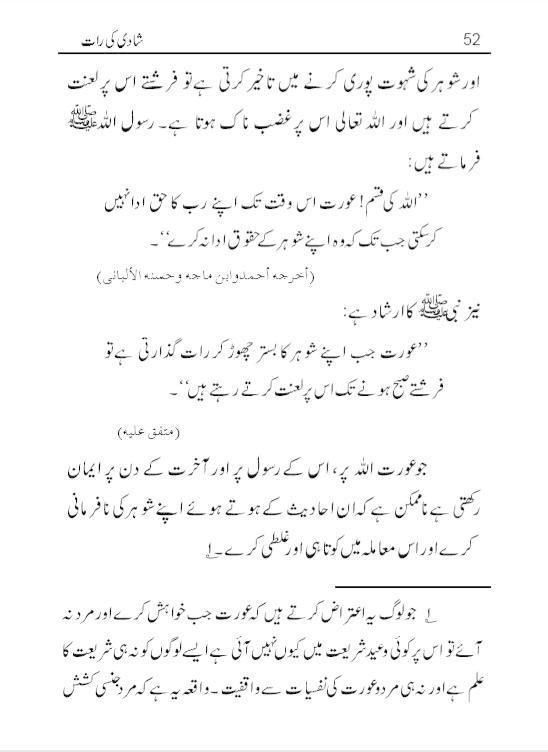 52 شادی کی رات
اور شوہر کی شہوت پوری کرنے میں تاخیر کرتی ہے تو فرشتے اس پر لعنت
کرتے ہیں اور اللہ تعالی اس پر غضب ناک ہوتا ہے۔ رسول اللہ ﷺ
فرماتے ہیں:
’’اللہ کی قسم! عورت اس وقت تک اپنے رب کا حق ادا نہیں
کرسکتی جب تک کہ وہ اپنے شوہر کے حقوق ادا نہ کرے‘‘۔
(أخرجه أحمد وابن ماجه وحسنه الألبانی)
نیز نبی ﷺ کا ارشاد ہے:
’’عورت جب اپنے شوہر کا بستر چھوڑ کر رات گذارتی ہے تو
فرشتے صبح ہونے تک اس پر لعنت کرتے رہتے ہیں‘‘۔
(متفق علیه)
جو عورت اللہ پر، اس کے رسول پر اور آخرت کے دن پر ایمان
رکھتی ہے ناممکن ہے کہ ان احادیث کے ہوتے ہوئے اپنے شوہر کی نافرمانی
کرے اور اس معاملہ میں کوتاہی اور غلطی کرے۔ ؂۱
؂۱ جو لوگ یہ اعتراض کرتے ہیں کہ عورت جب خواہش کرے اور مرد نہ
آئے تو اس پر کوئی وعید شریعت میں کیوں نہیں آئی ہے ایسے لوگوں کو نہ ہی شریعت کا
علم ہے اور نہ ہی مرد و عورت کی نفسیات سے واقفیت۔ واقعہ یہ ہے کہ مرد جنسی کشش